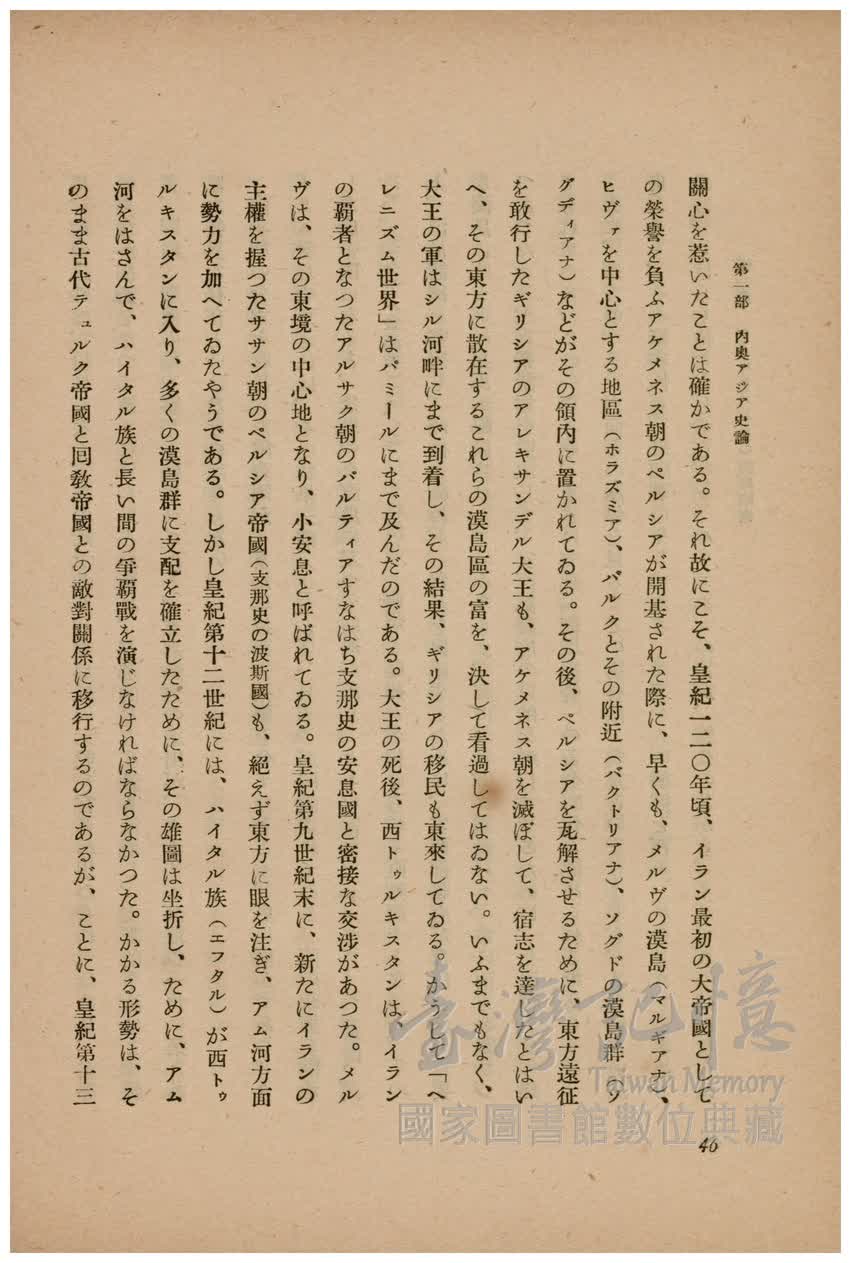 第一部　內奧アジア史論
關心を惹いたことは確かである。それ故にこそ、皇紀一二〇年頃、イラン最初の大帝國として
の榮譽を負ふアケメネス朝のペルシアが開基された際に、早くも、メルヴの漠島（マルギアナ）、
ヒヴァを中心とする地區（ホラズミア）、バルクとその附近（バクトリアナ）、ソグドの漠島群（ソ
グディアナ）などがその領內に置かれてゐる。その後、ペルシアを瓦解させるために、東方遠征
を敢行したギリシアのアレキサンデル大王も、アケメネス朝を滅ぼして、宿志を達したとはい
へ、その東方に散在するこれらの漠島區の富を、決して看過してはゐない。いふまでもなく、
大王の軍はシル河畔にまで到着し、その結果、ギリシアの移民も東來してゐる。かうして「ヘ
レニズム世界」はパミールにまで及んだのである。大王の死後、西トゥルキスタンは、イラン
の覇者となつたアルサク朝のパルティアすなはち支那史の安息國と密接な交涉があつた。メル
ヴは、その東境の中心地となり、小安息と呼ばれてゐる。皇紀第九世紀末に、新たにイランの
主權を握つたササン朝のペルシア帝國（支那史の波斯國）も、絕えず東方に眼を注ぎ、アム河方面
に勢力を加へてゐたやうである。しかし皇紀第十二世紀には、ハイタル族（エフタル）が西トゥ
ルキスタンに入り、多くの漠島群に支配を確立したために、その雄圖は坐折し、ために、アム
河をはさんで、ハイタル族と長い間の爭覇戰を演じなければならなかつた。かかる形勢は、そ
のまま古代テュルク帝國と回敎帝國との敵對關係に移行するのであるが、ことに、皇紀第十三
46
臺灣記憶
Taiwan Memory
國家圖書館數位典藏